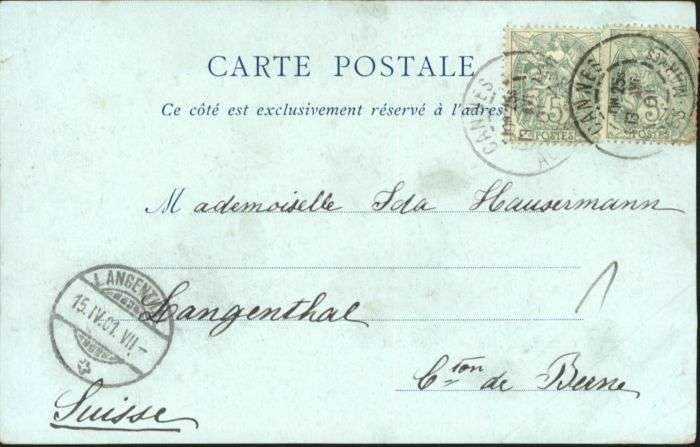 CARTE POSTALE
Ce côté est exclusivement réservé à l'adres
CANNES
5
POSTES
CANNES
13
5
Mademoiselle Ida Hausermann
LANGENT
15.IV.01. VII-
Langenthal
1
Cton de Berne
Suisse